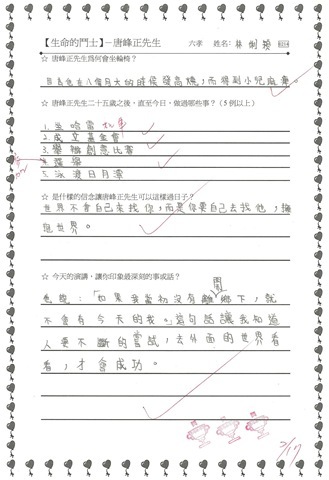 【生命的鬥士】－唐峰正先生 六孝 姓名:
☆ 唐峰正先生為何會坐輪椅？
因為他在八個月大的時候發高燒，而得到小兒麻痺。
☆ 唐峰正先生二十五歲之後，直至今日，做過哪些事？(5 例以上)
1. 坐哈雷
2. 成立基金會
3. 舉辦創意比賽
4. 選舉
5. 泳渡日月潭
☆ 是什樣的信念讓唐峰正先生可以這樣過日子？
世界不會自己來找你，而是你要自己去找他，擁
抱世界。
☆ 今天的演講，讓你印象最深刻的事或話？
開
他說：「如果我當初沒有離鄉下，就
不會有今天的我。」這句話讓我知道
人要不斷的嘗試，去外面的世界看
看，才會成功。
2/17